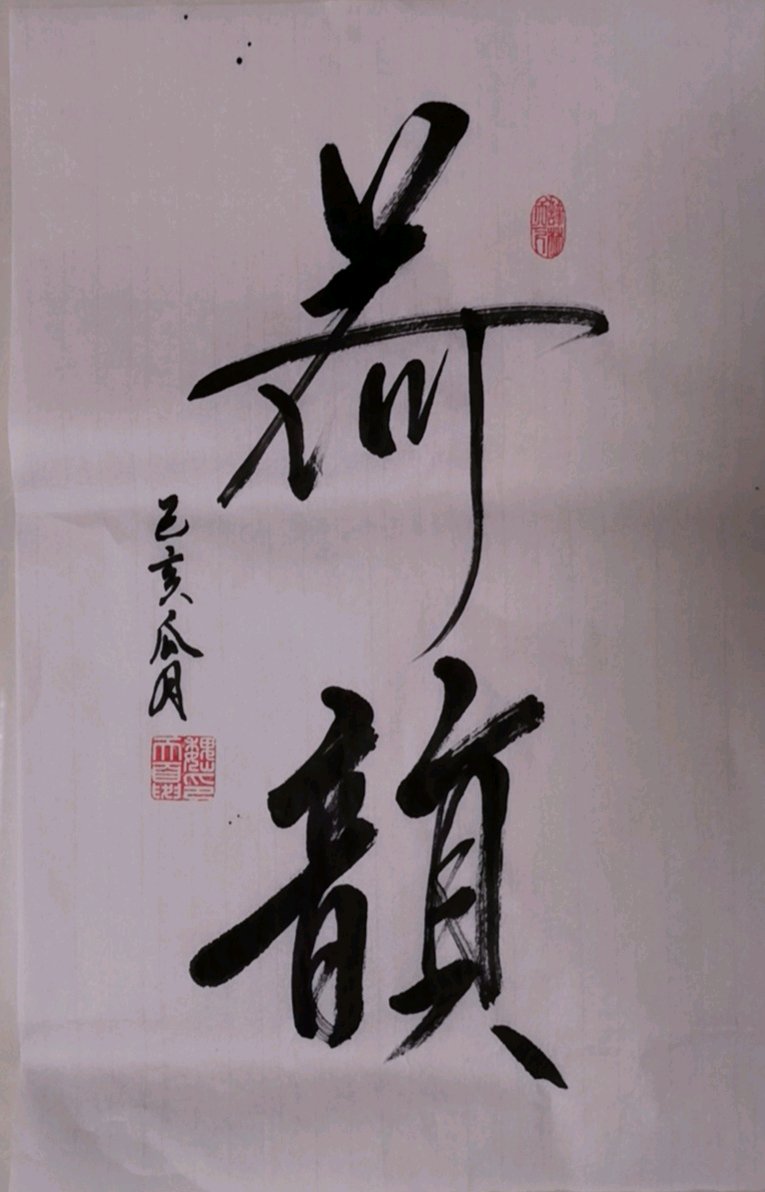 荷韻
己亥瓜月